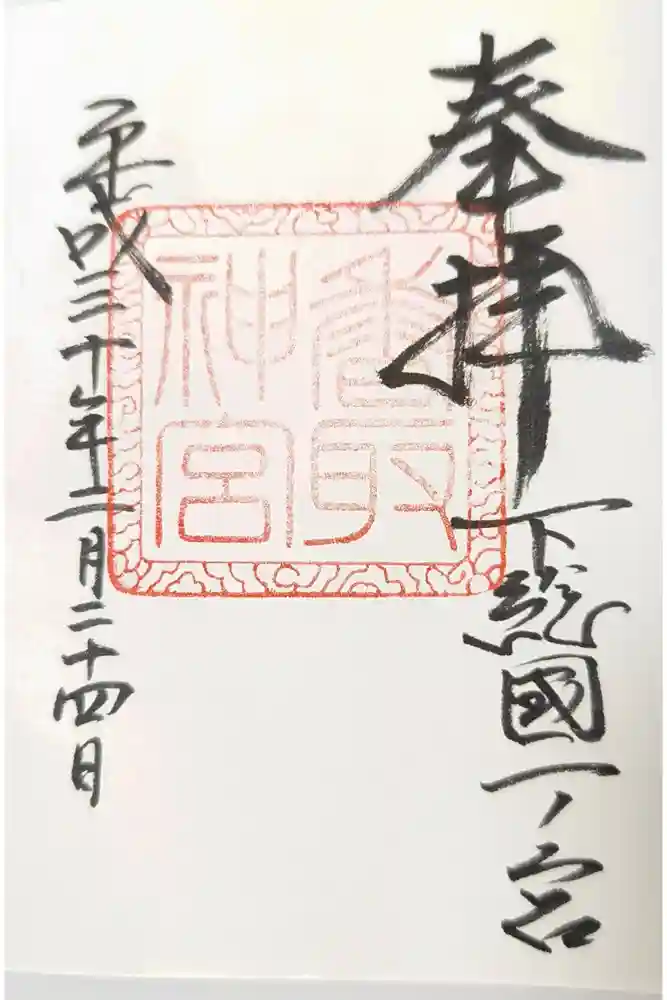 奉拝
下総國一ノ宮
香取
神宮
平成三十年二月二十四日